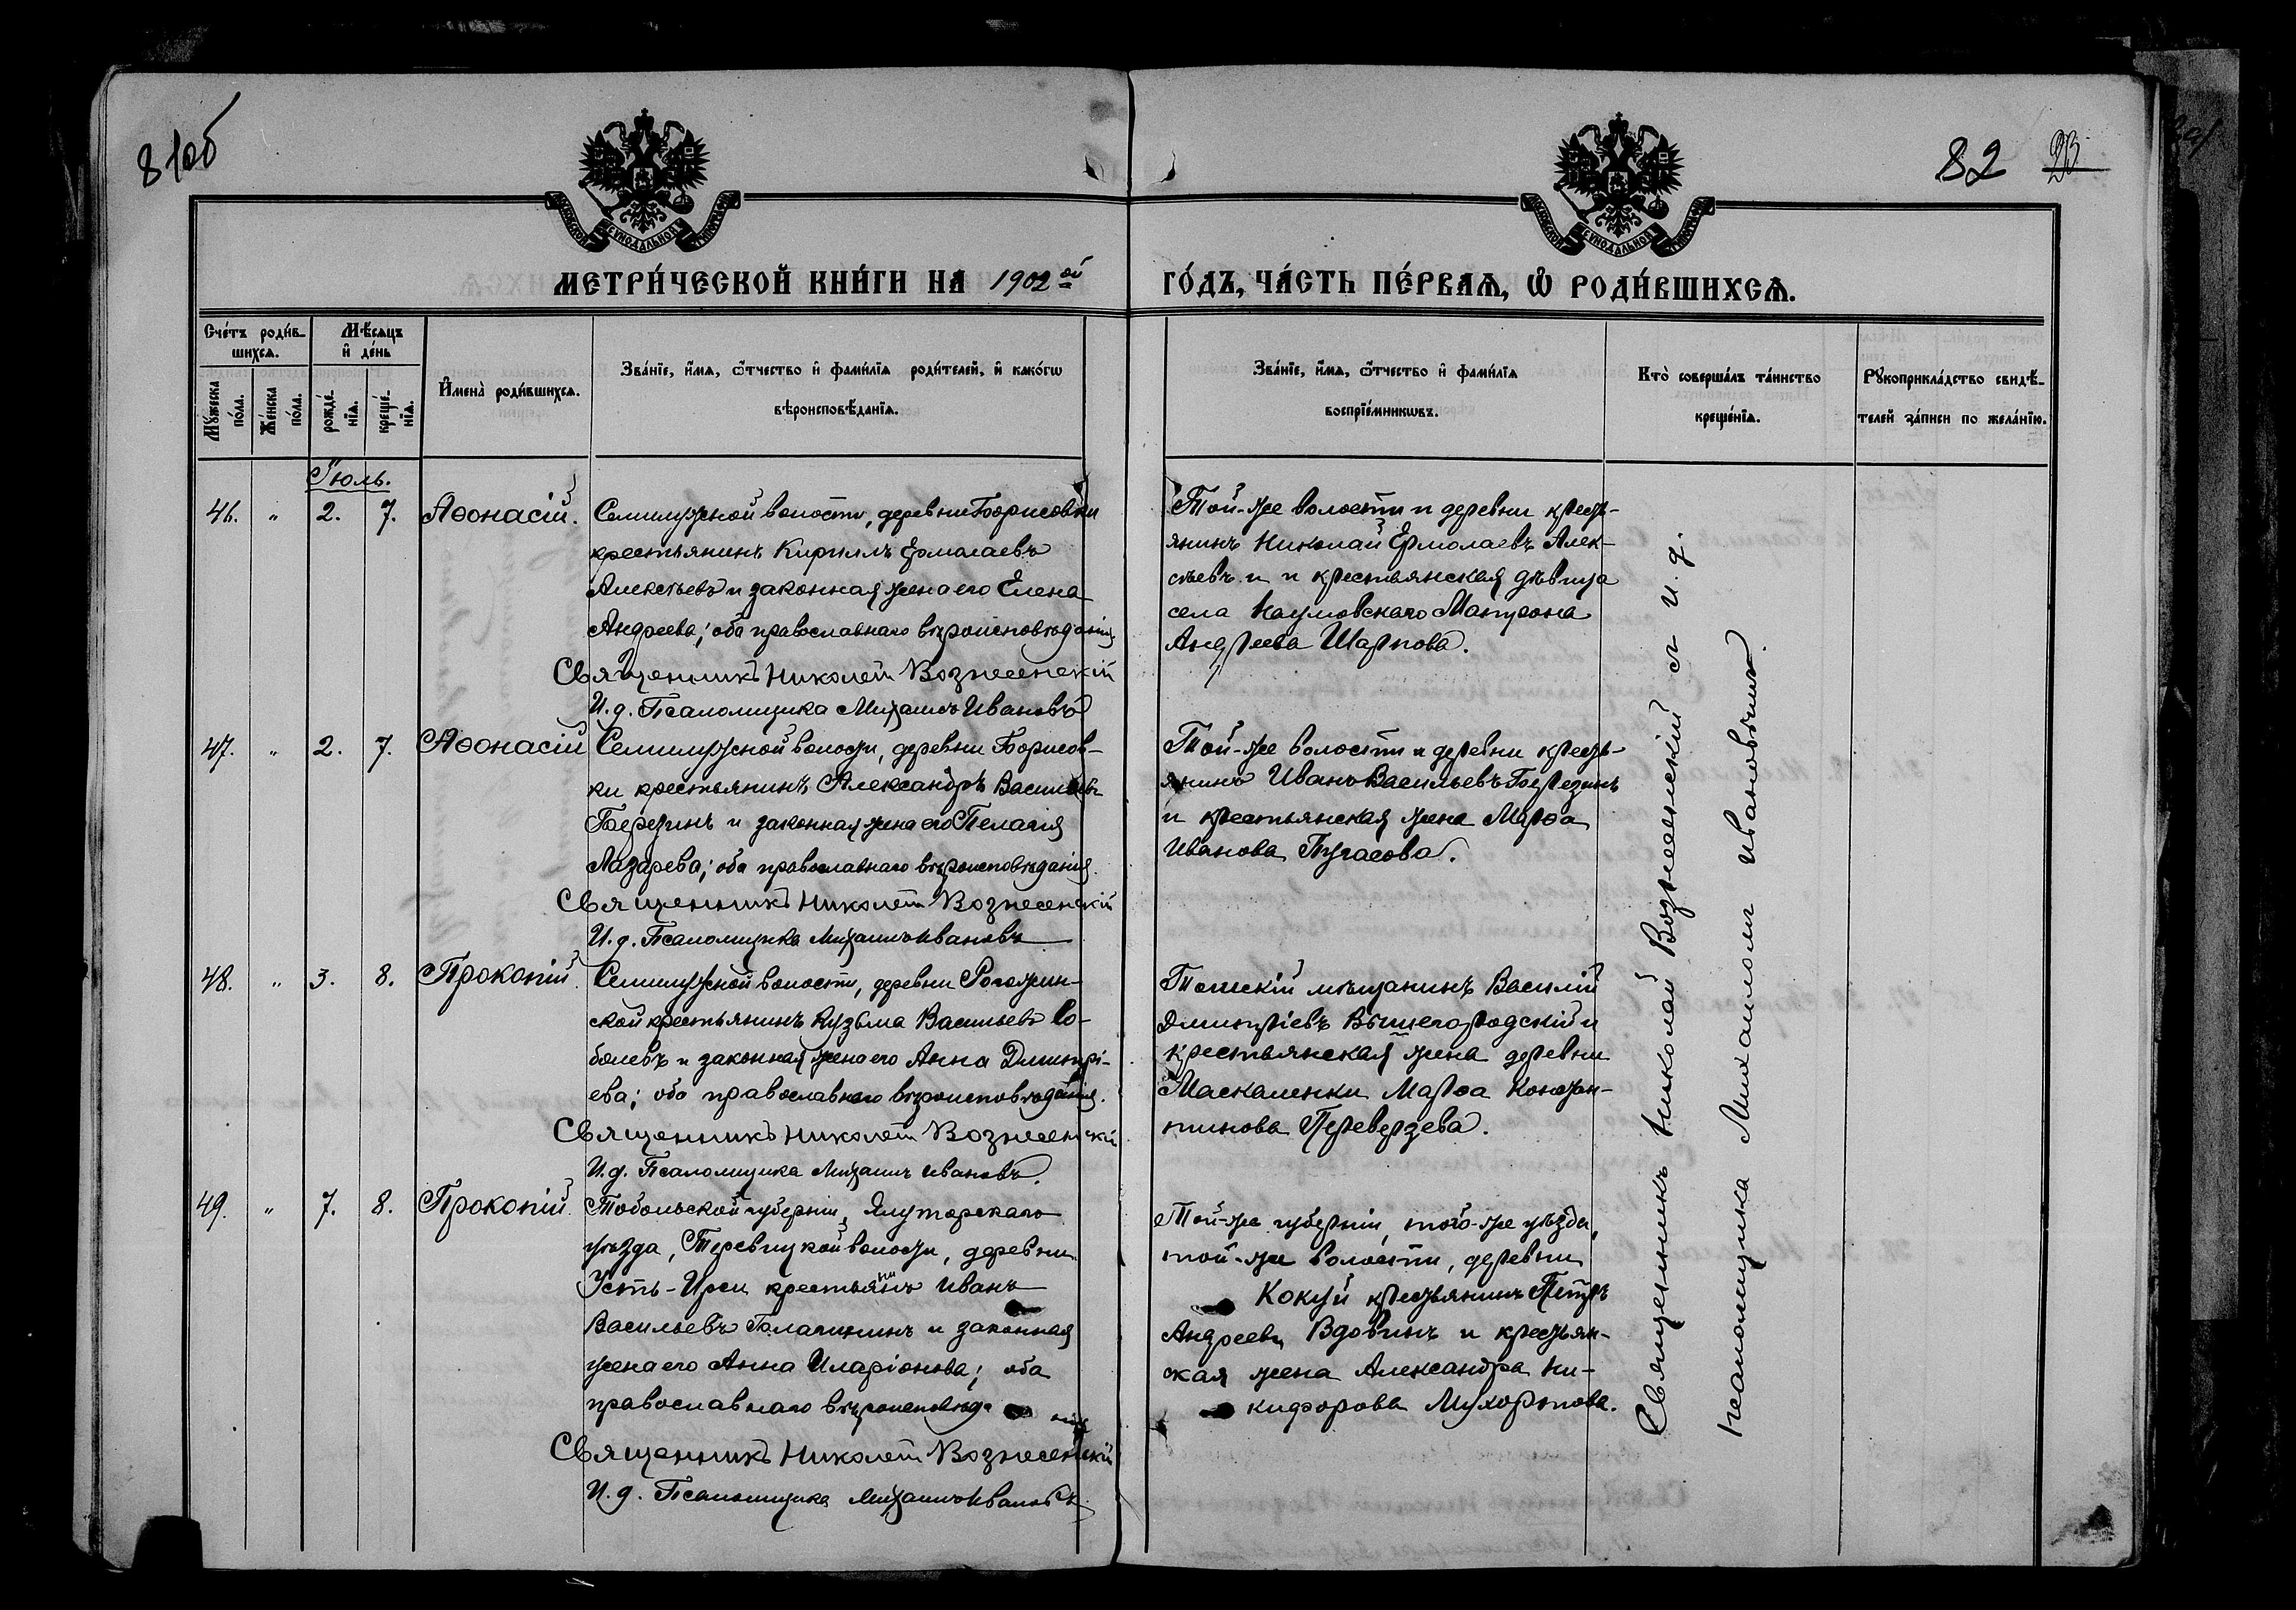 81об
82
23
МЕТРИ́ЧЕСКОЙ КНИ́ГИ НА 1902ой ГО́ДЪ, ЧА́СТЬ ПЕ́РВАѦ, Ѡ РОДИ́ВШИХСѦ.
Сче́тъ роди́в-
шихсѧ.
Мꙋжеска по́ла.
Же́нска по́ла.
Мѣ́сѧцъ
и҆ де́нь
рожде́-
нїѧ.
креще́-
нїѧ.
И҆мена̀ роди́вшихсѧ.
Зва́нїе, и҆́мѧ, ѻ҆́тчество и҆ фами́лїѧ роди́телей, и҆ како́гѡ
вѣроисповѣ́данїѧ.
Зва́нїе, и҆́мѧ, ѻ҆́тчество и҆ фами́лїѧ
воспрїе́мникѡвъ.
Кто̀ соверша́лъ та́инство
креще́нїѧ.
Рꙋкоприкла́дство свидѣ́-
телей за́писи по жела́нїю.
Іюль.
46. " 2. 7. Аѳонасій.
Семилужной волости, деревни Борисовки
крестьянинъ Кириллъ Ермолаевъ
Алексѣевъ и законная жена его Елена
Андреева; оба православнаго вѣроисповѣданія
Священникъ Николай Вознесенскій
И.д. Псаломщика Михаилъ Ивановъ
Той-же волости и деревни кресть-
янинъ Николай Ермолаевъ Алек-
сѣевъ и и крестьянская дѣвица
села Наумовскаго Матрона
Андреева Шарпова.
47. " 2. 7. Аѳонасій
Семилужной волости, деревни Борисов-
ки крестьянинъ Александръ Васильевъ
Березинъ и законная жена его Пелагія
Лазарева; оба православнаго вѣроисповѣданія.
Священникъ Николай Вознесенскій
И.д. Псаломщика Михаилъ Ивановъ
Той-же волости и деревни кресть-
янинъ Иванъ Васильевъ Березинъ
и крестьянская жена Марѳа
Иванова Пугасова.
48. " 3. 8. Прокопій.
Семилужной волости, деревни Рогожин-
ской крестьянинъ Кузьма Васильевъ Со-
болевъ и законная жена его Анна Димитрі-
ева; оба православнаго вѣроисповѣданія.
Священникъ Николай Вознесенскій
И.д. Псаломщика Михаилъ Ивановъ.
Томскій мѣщанинъ Василій
Димитріевъ Вышегородскій и
крестьянская жена деревни
Маскаленки Марѳа Констан-
тинова Переверзева.
49. " 7. 8. Прокопій.
Тобольской губерніи, Ялуторскаго
уѣзда, волости, деревни
Усть- крестьянинъ Иванъ
Васильевъ Галагинъ и законная
жена его Анна Иларіонова; оба
православнаго вѣроисповѣданія
Священникъ Николай Вознесенскій
И.д. Псаломщика Михаилъ Ивановъ.
Той-же губерніи, того-же уѣзда,
той-же волости, деревни
Кокуй крестьянинъ Петръ
Андреевъ Вдовинъ и крестьян-
ская жена Александра Ни-
кифорова Мухортова.
Священникъ Николай Вознесенскій съ и.д.
псаломщика Михаиломъ Ивановымъ.